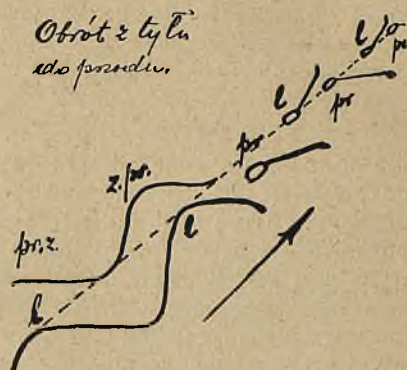 Obrót z tyłu
do przodu.
l
pr
l
pr
l
pr
z. pr.
l
pr. z.
l